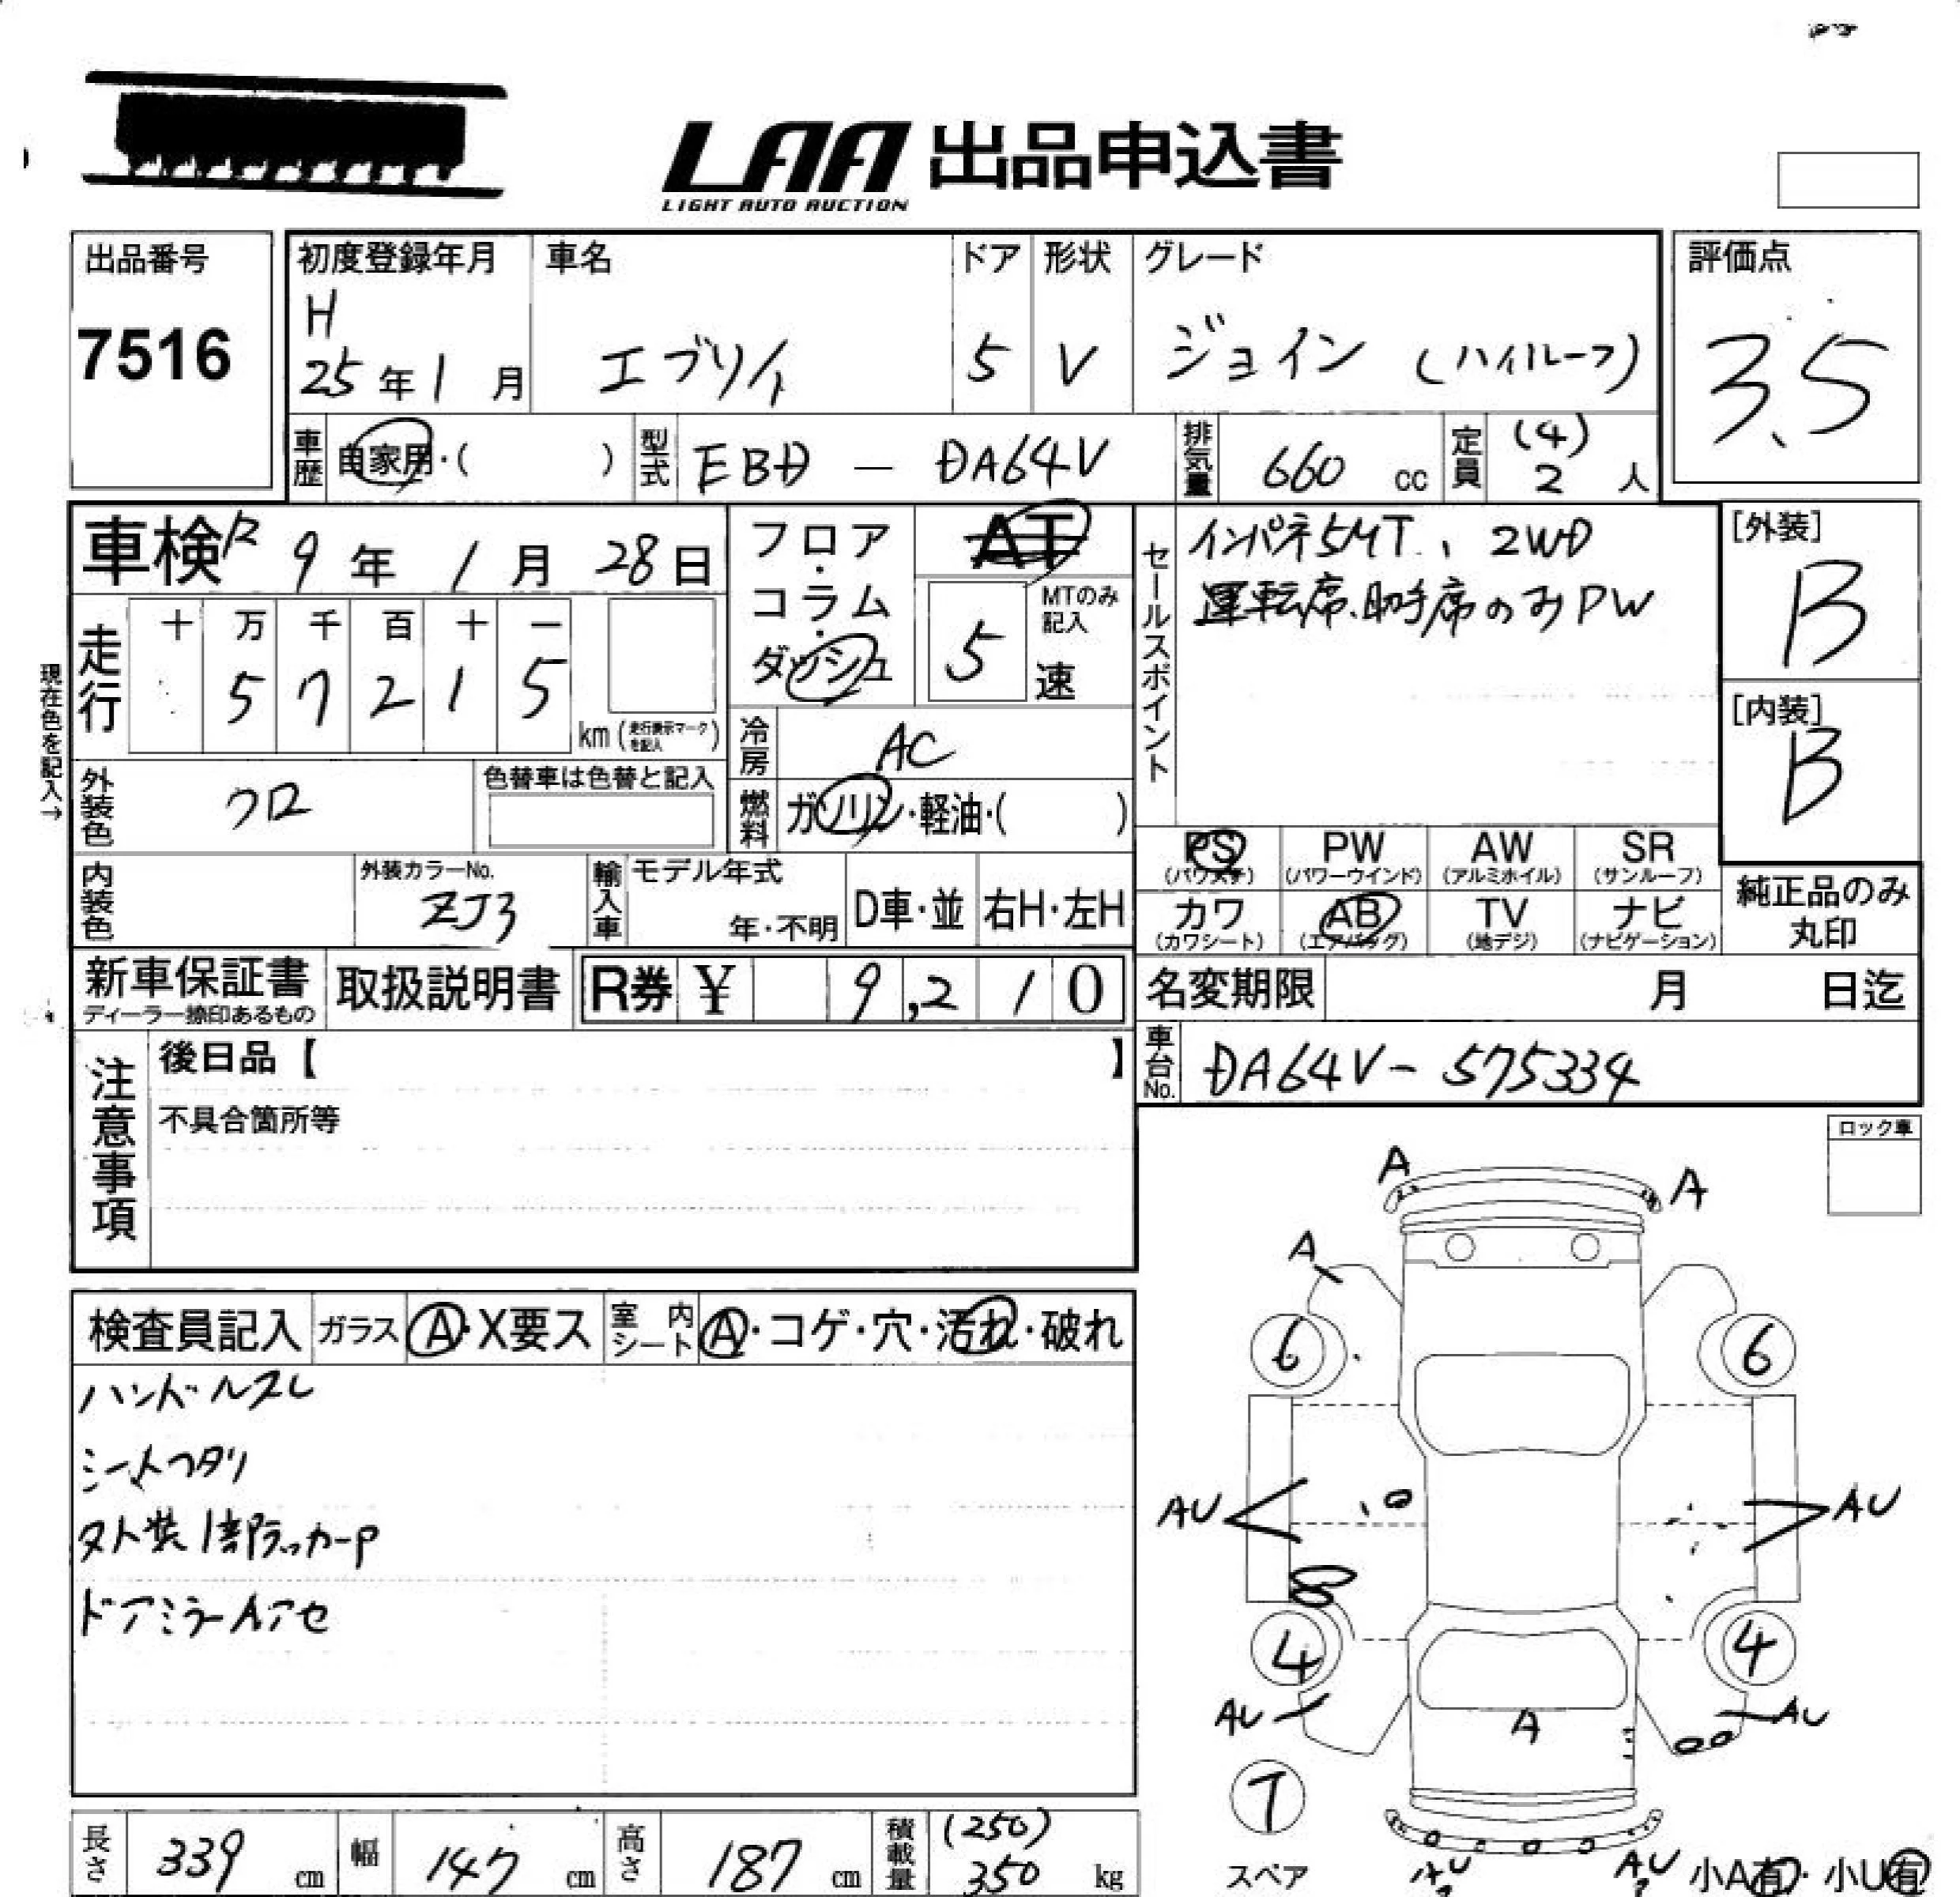 LAA 出品申込書
LIGHT AUTO AUCTION
出品番号
7516
初度登録年月
H
25年1月
車名
エブリイ
ドア
5
形状
V
グレード
ジョイン (ハイルーフ)
評価点
3.5
車歴
自家用・( )
型式
EBD － DA64V
排気量
660 cc
定員
(4)
2 人
車検 R 9年 1月 28日
フロア・コラム・ダッシュ
AT
MTのみ記入
5 速
セールスポイント
インパネ5MT、2WD
運転席、助手席のみPW
[外装]
B
[内装]
B
現在色を記入→
走行
十 万 千 百 十 一
5 7 2 1 5
km (走行表示マークを記入)
冷房
AC
外装色
クロ
色替車は色替と記入
燃料
ガソリン・軽油・( )
PS (パワステ)
PW (パワーウインド)
AW (アルミホイル)
SR (サンルーフ)
カワ (カワシート)
AB (エアバッグ)
TV (地デジ)
ナビ (ナビゲーション)
純正品のみ
丸印
内装色
外装カラーNo.
ZJ3
輸入車
モデル年式
年・不明
D車・並
右H・左H
新車保証書
ディーラー捺印あるもの
取扱説明書
R券 ¥ 9,210
名変期限 月 日迄
車台No.
DA64V－575334
注意事項
後日品【 】
不具合箇所等
ロック車
検査員記入
ガラス
A・X要ス
室内シート
A・コゲ・穴・汚れ・破れ
ハンドルスレ
シートヘタリ
外装1部ラッカーP
ドアミラーAアセ
A
A
A
6
6
AU
AU
4
4
AU
AU
A
スペア
AU
AU
小A有・小U有
長さ 339 cm
幅 147 cm
高さ 187 cm
積載量
(250)
350 kg